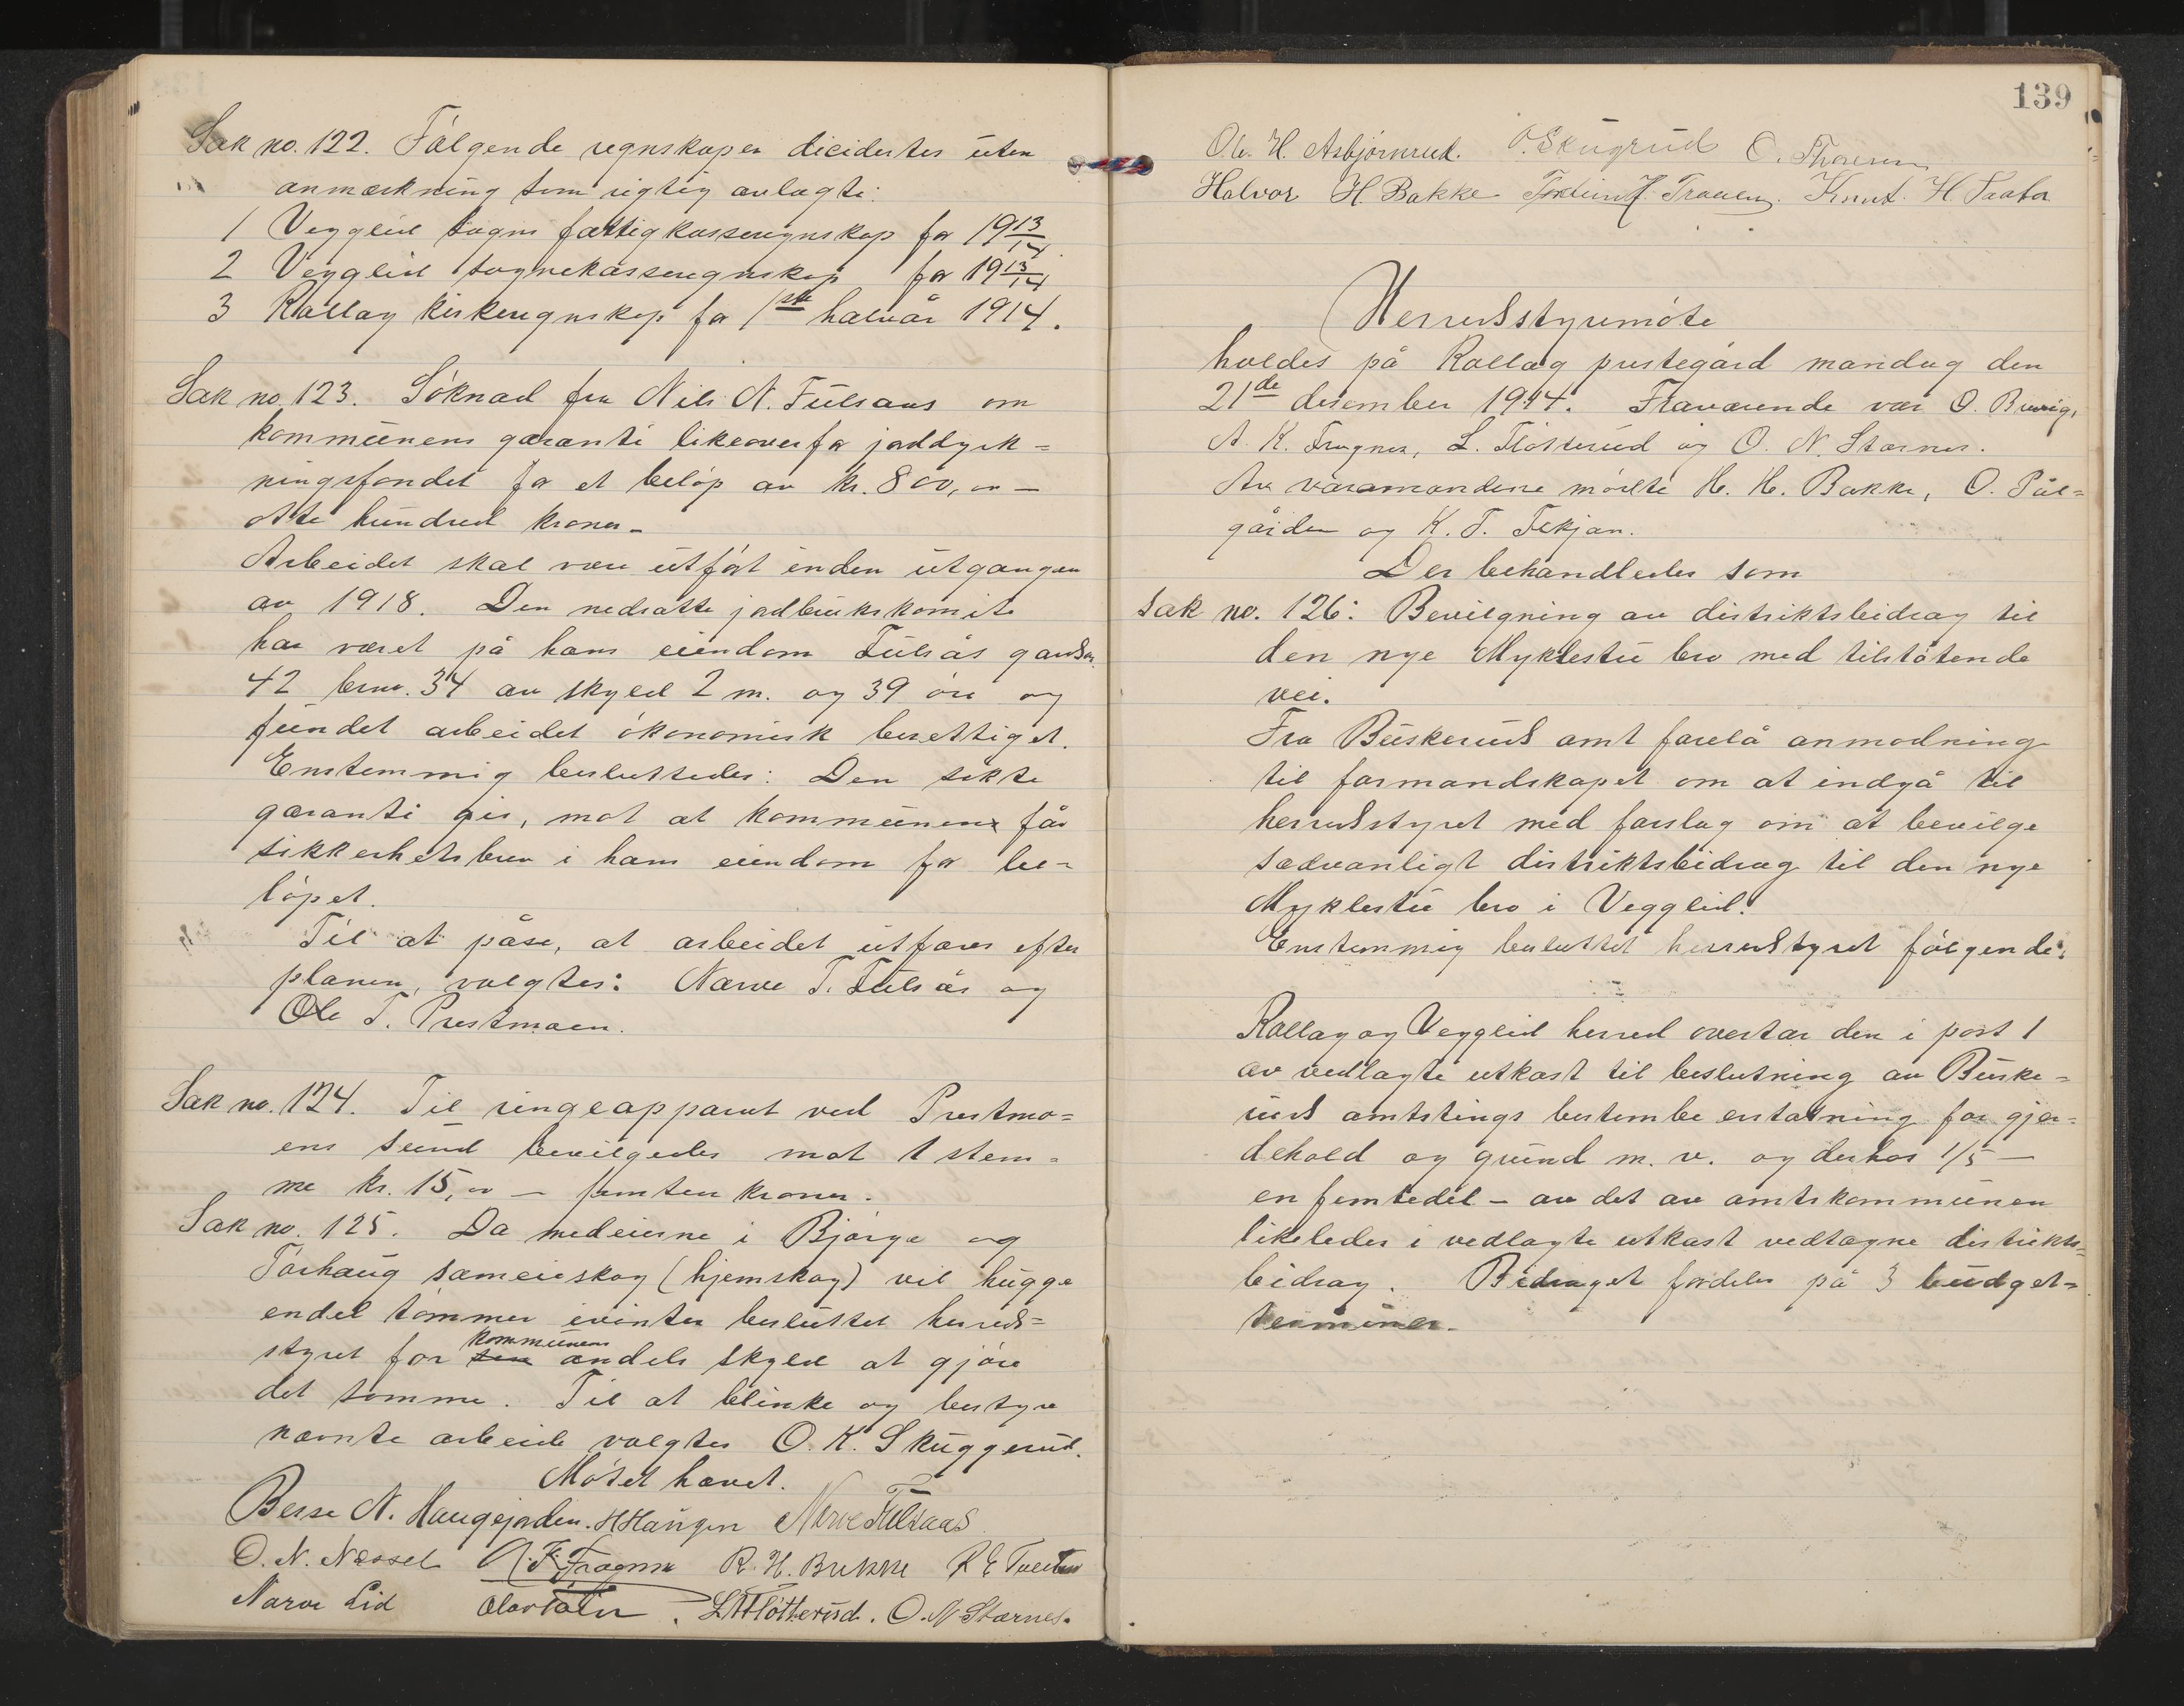 Sak no. 122. Følgende regnskaper dicidertes uten
anmerkning som rigtig avlagte:
1 Vegglid sogns fattigkasseregnskap for 1913/14
2 Vegglid sognekasseregnskap for 1913/14
3 Rollag kirkeregnskap for 1ste halvår 1914.
Sak no. 123. Söknad fra Nils N. Fulsaas om
kommunens garanti likeoverfor jorddyrk=
ningsfondet for et beløp av kr. 800,00 —
otte hundred kroner -
Arbeidet skal være utført inden utgangen
av 1918. Den nedsatte jordbrukskomite
har været på hans eiendom Fulsås gardsn.
42 brno. 34 av skyld 2 m. og 39 öre og
fundet arbeidet ökonomisk berettiget.
Enstemmig besluttedes: Den søkte
garanti gis, mot at kommunen får
sikkerhetsbrev i hans eiendom for be=
löpet.
Til at påse, at arbeidet utföres efter
planen, valgtes: Narve T. Fulsås og
Ole T. Prestmoen.
Sak no. 124. Til ringeapparat ved Prestmo=
ens sund bevilgedes mot 1 stem=
me kr. 15,00 — femten kroner.
Sak no. 125. Da medeierne i Bjørge og
Tørhaug sameieskog (hjemskog) vil hugge
endel tömmer ivinter besluttet herreds=
styret for kommunens andels skyld at gjöre
det samme. Til at blinke og bestyre
nævnte arbeide valgtes O. K. Skuggerud.
Mötet hævet.
Besse N. Haugejorden. H Haugen Narve Fulsaas
O. N. Næssel R. H. Bukke
Narve Lid L. Fløtterud. O. N. Stærnes.
139
Ole H. Asbjørnrud. O. Skugrud O. Thoresen
Halvor H. Bakke Knut H.
Herredsstyremöte
holdes på Rollag prestegård mandag den
21de desember 1914. Fraværende var O. Bruvig,
A. K. Fragner, L. Fløtterud og O. N. Stærnes.
Av varamændene mödte H. H. Bakke, O. Pål=
gården og K. T. Tekjan.
Der behandledes som
Sak no. 126: Bevilgning av distriktsbidrag til
den nye Myklestu bro med tilstötende
vei.
Fra Buskeruds amt forelå anmodning
til formandskapet om at indgå til
herredsstyret med forslag om at bevilge
sedvanligt distriktsbidrag til den nye
Myklestu bro i Vegglid.
Enstemmig besluttet herredstyret følgende:
Rollag og Vegglid herred overtar den i post 1
av vedlagte utkast til beslutning av Buske=
ruds amtstings bestembe erstatning for gjær=
dehold og grund m. v. og derhos 1/5 —
en femtedel — av det av amtskommunen
likeledes i vedlagte utkast vedtagne distrikts=
bidrag. Bidraget fordeles på 3 budget=
terminer.